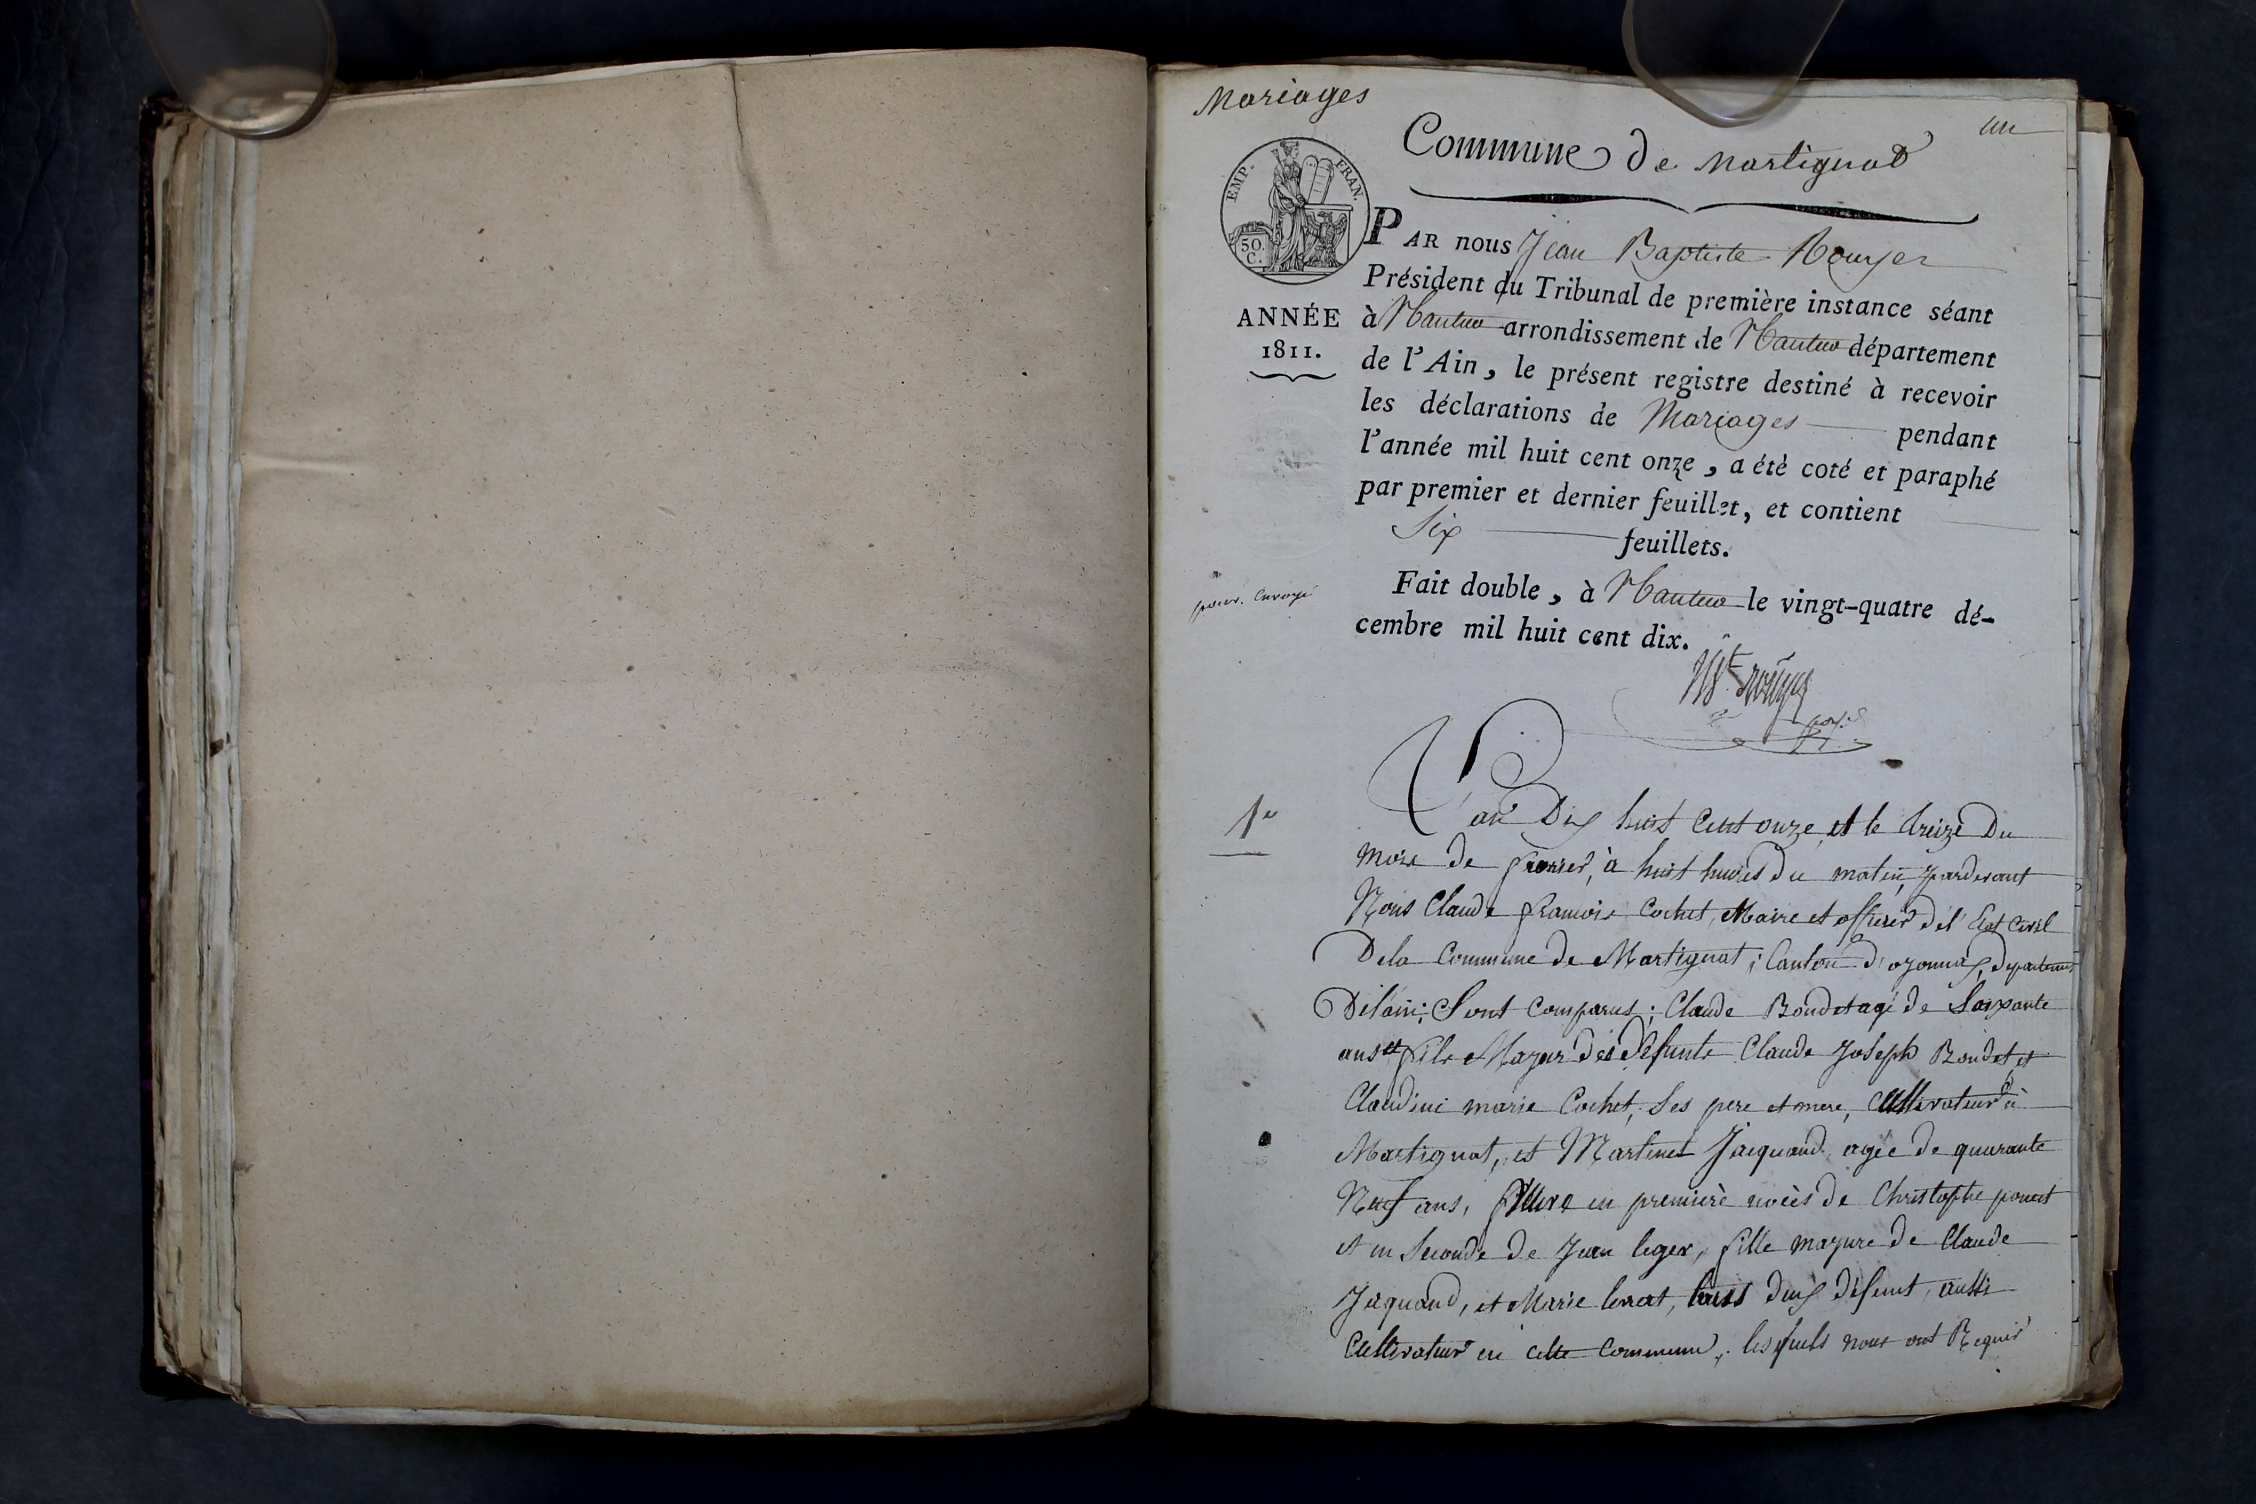 Mariages
un
Commune de Martignat
EMP. FRAN.
50. C.
PAR nous Jean Baptiste Rouyer
Président du Tribunal de première instance séant
ANNÉE
1811.
à Nantua arrondissement de Nantua département
de l'Ain, le présent registre destiné à recevoir
les déclarations de Mariages pendant
l'année mil huit cent onze, a été coté et paraphé
par premier et dernier feuillet, et contient
Six feuillets.
Fait double, à Nantua le vingt-quatre dé-
cembre mil huit cent dix.
1er
L'an Dix huit Cent onze et le treize Du
mois de fevrier, à huit heures du matin, pardevant
Nous Claude francois Cochet, Maire et officier de l'Etat Civil
Dela Commune de Martignat; Canton d'oyonnax, departement
Del'ain; Sont Comparus; Claude Bondet agé de Soixante
ans et fils Mageur des défunts Claude Joseph Bondet et
Claudine marie Cochet, Ses pere et mere, Cultivateur à
Martignat, et Martine Jacquand agée de quarante
Neuf ans, en premiere noces de Christophe poncet
et en Seconde de Jean leger, fille mageure de Claude
Jacquand, et Marie tous deux défunt, aussi
Cultivateur en cette Commune, lesquels nous ont Requis